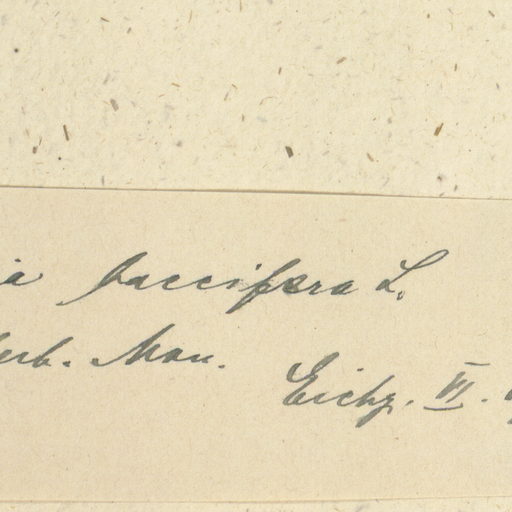 baccifera L.
Herb. Mon.
Eichg. VI.